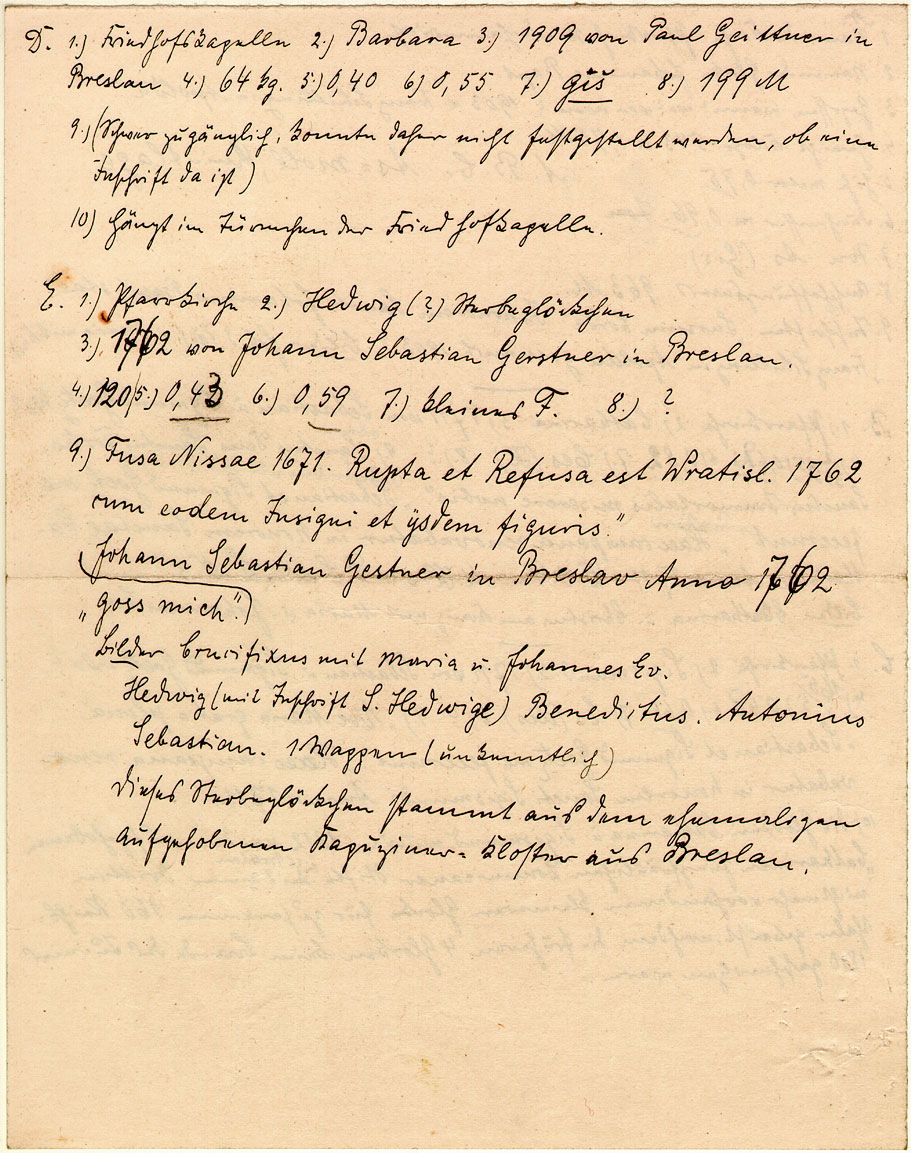 D. 1.) Friedhofskapelle 2.) Barbara 3.) 1909 von Paul Geittner in
Breslau 4.) 64 kg. 5.) 0,40 6.) 0,55 7.) gis 8.) 199 M
9.) (Schwer zugänglich, konnte daher nicht festgestellt werden, ob eine
Inschrift da ist)
10) hängt im Türmchen der Friedhofkapelle.
E. 1.) Pfarrkirche 2.) Hedwig (?) Sterbeglöckchen
3.) 1762 von Johann Sebastian Gerstner in Breslau.
4.) 120 5.) 0,43 6.) 0,59 7.) kleines F. 8.) ?
9.) Fusa Nissae 1671. Rupta et Refusa est Wratisl. 1762
cum eodem Insigni et ÿsdem figuris."
(Johann Sebastian Gestner in Breslav Anno 1762
„goss mich".)
Bilder Crucifixus mit Maria u. Johannes Ev.
Hedwig (mit Inschrift S. Hedwige) Benedictus. Antonius
Sebastian. 1 Wappen (unkenntlich)
Dieses Sterbeglöckchen stammt aus dem ehemaligen
aufgehobenen Kapuziner-Kloster aus Breslau.